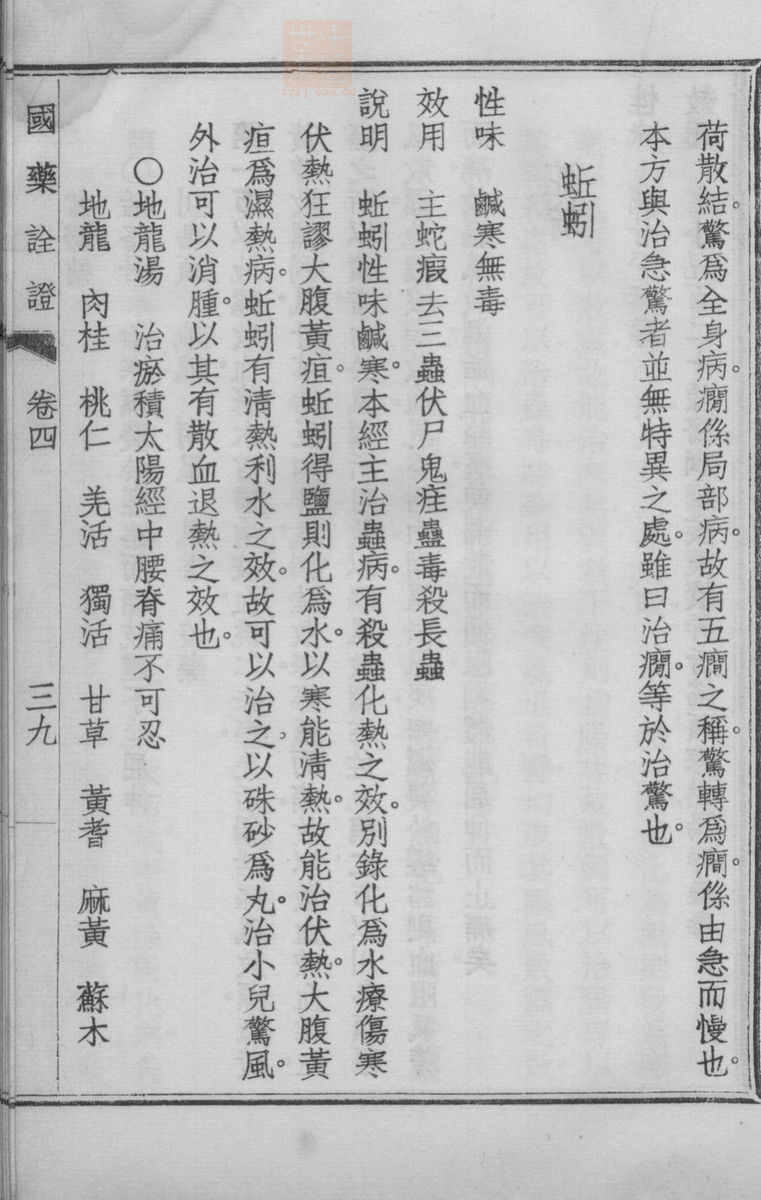 荷散結。驚爲全身病。癇係局部病。故有五癎之稱。驚轉爲癎。係由急而慢也。
本方與治急驚者並無特異之處。雖曰治癇。等於治驚也。
蚯蚓
性味　鹹寒無毒
效用　主蛇瘕去三蟲伏尸鬼疰蠱毒殺長蟲
說明　蚯蚓性味鹹寒。本經主治蟲病。有殺蟲化熱之效。別錄化爲水療傷寒
伏熱狂謬大腹黃疸。蚯蚓得鹽則化爲水。以寒能淸熱。故能治伏熱。大腹黃
疸爲濕熱病。蚯蚓有淸熱利水之效。故可以治之。以硃砂爲丸。治小兒驚風。
外治可以消腫。以其有散血退熱之效也。
〇地龍湯　治瘀積太陽經中腰脊痛不可忍
地龍　肉桂　桃仁　羌活　獨活　甘草　黃耆　麻黃　蘇木
國藥詮證　卷四　三九